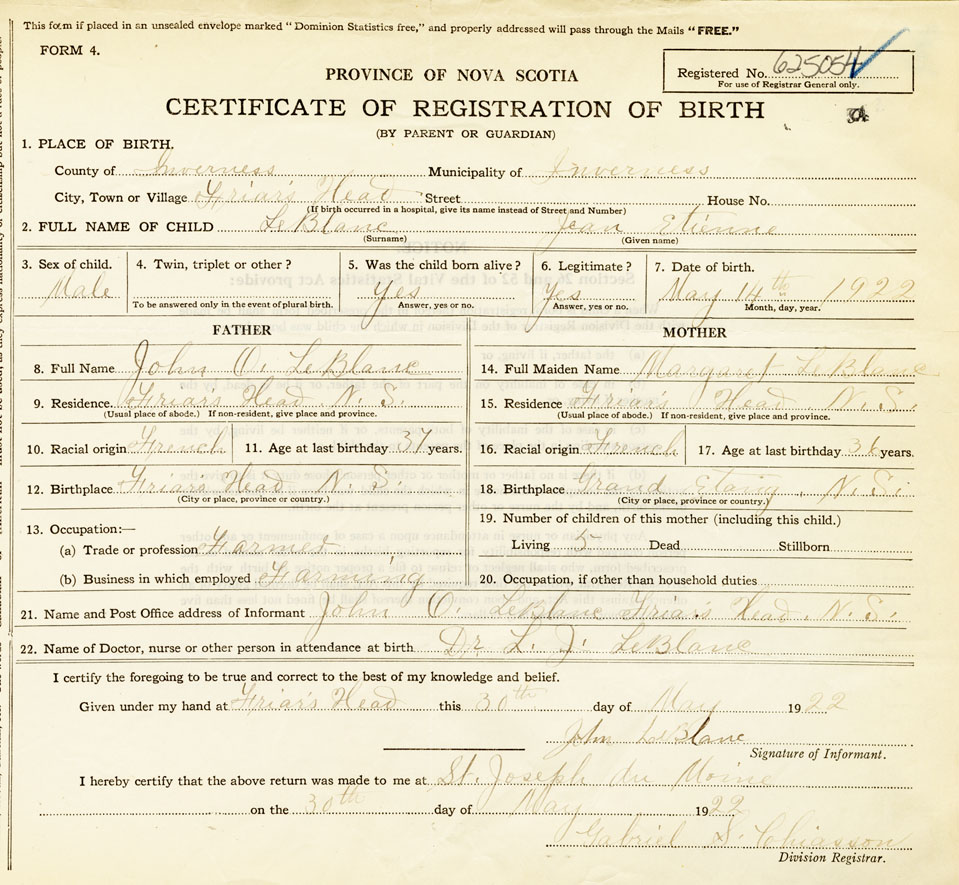 This form if placed in an unsealed envelope marked "Dominion Statistics free," and properly addressed will pass through the Mails "FREE."
FORM 4.
Registered No. 625054
For use of Registrar General only.
PROVINCE OF NOVA SCOTIA
CERTIFICATE OF REGISTRATION OF BIRTH
(BY PARENT OR GUARDIAN)
1. PLACE OF BIRTH.
County of Inverness Municipality of Inverness
City, Town or Village Friar's Head Street House No.
(If birth occurred in a hospital, give its name instead of Street and Number)
2. FULL NAME OF CHILD LeBlanc Jean Etienne
(Surname) (Given name)
3. Sex of child. 4. Twin, triplet or other? 5. Was the child born alive? 6. Legitimate? 7. Date of birth.
Male Yes Yes May 14th 1922
To be answered only in the event of plural birth. Answer, yes or no. Answer, yes or no. Month, day, year.
FATHER MOTHER
8. Full Name John O. LeBlanc 14. Full Maiden Name Margaret LeBlanc
9. Residence. Friar's Head N. S. 15. Residence Friar's Head, N. S.
(Usual place of abode.) If non-resident, give place and province. (Usual place of abode.) If non-resident, give place and province.
10. Racial origin French 11. Age at last birthday 37 years. 16. Racial origin French 17. Age at last birthday 36 years.
12. Birthplace Friar's Head N. S. 18. Birthplace Grand Etang, N. S.
(City or place, province or country.) (City or place, province or country.)
13. Occupation:— 19. Number of children of this mother (including this child.)
(a) Trade or profession Farmer Living 5 Dead Stillborn
(b) Business in which employed Farming 20. Occupation, if other than household duties
21. Name and Post Office address of Informant John O. LeBlanc Friar's Head, N. S.
22. Name of Doctor, nurse or other person in attendance at birth Dr. L. J. LeBlanc
I certify the foregoing to be true and correct to the best of my knowledge and belief.
Given under my hand at Friar's Head this 30th day of May 1922
John LeBlanc
Signature of Informant.
I hereby certify that the above return was made to me at St. Joseph du Moine
on the 30th day of May 1922
Gabriel S. Chiasson
Division Registrar.